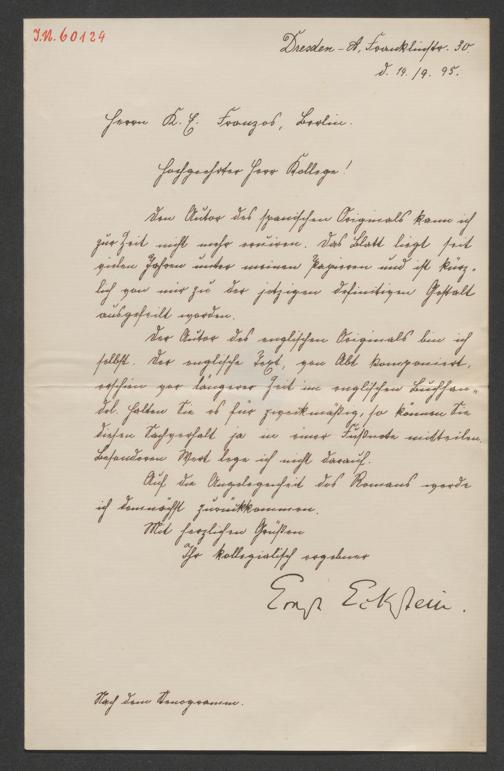 I.N. 60124
Dresden-A, Franklinstr. 30
d. 19./9. 95.
Herrn K. E. Franzos, Berlin.
Hochgeehrter Herr Kollege!
Den Autor des spanischen Originals kann ich
zur Zeit nicht mehr eruiren. Das Blatt liegt seit
vielen Jahren unter meinen Papieren und ist kürz-
lich von mir zu der jetzigen definitiven Gestalt
ausgefeilt worden.
Der Autor des englischen Originals bin ich
selbst. Der englische Text, von Abt komponiert,
erschien vor längerer Zeit im englischen Buchhan-
del. Halten Sie es für zweckmäßig, so können Sie
diesen Sachverhalt ja in einer Fußnote mitteilen.
Besonderen Wert lege ich nicht darauf.
Auf die Angelegenheit des Romans werde
ich demnächst zurückkommen.
Mit herzlichen Grüßen
Ihr kollegialisch ergebener
Ernst Eckstein.
Nach dem Stenogramm.